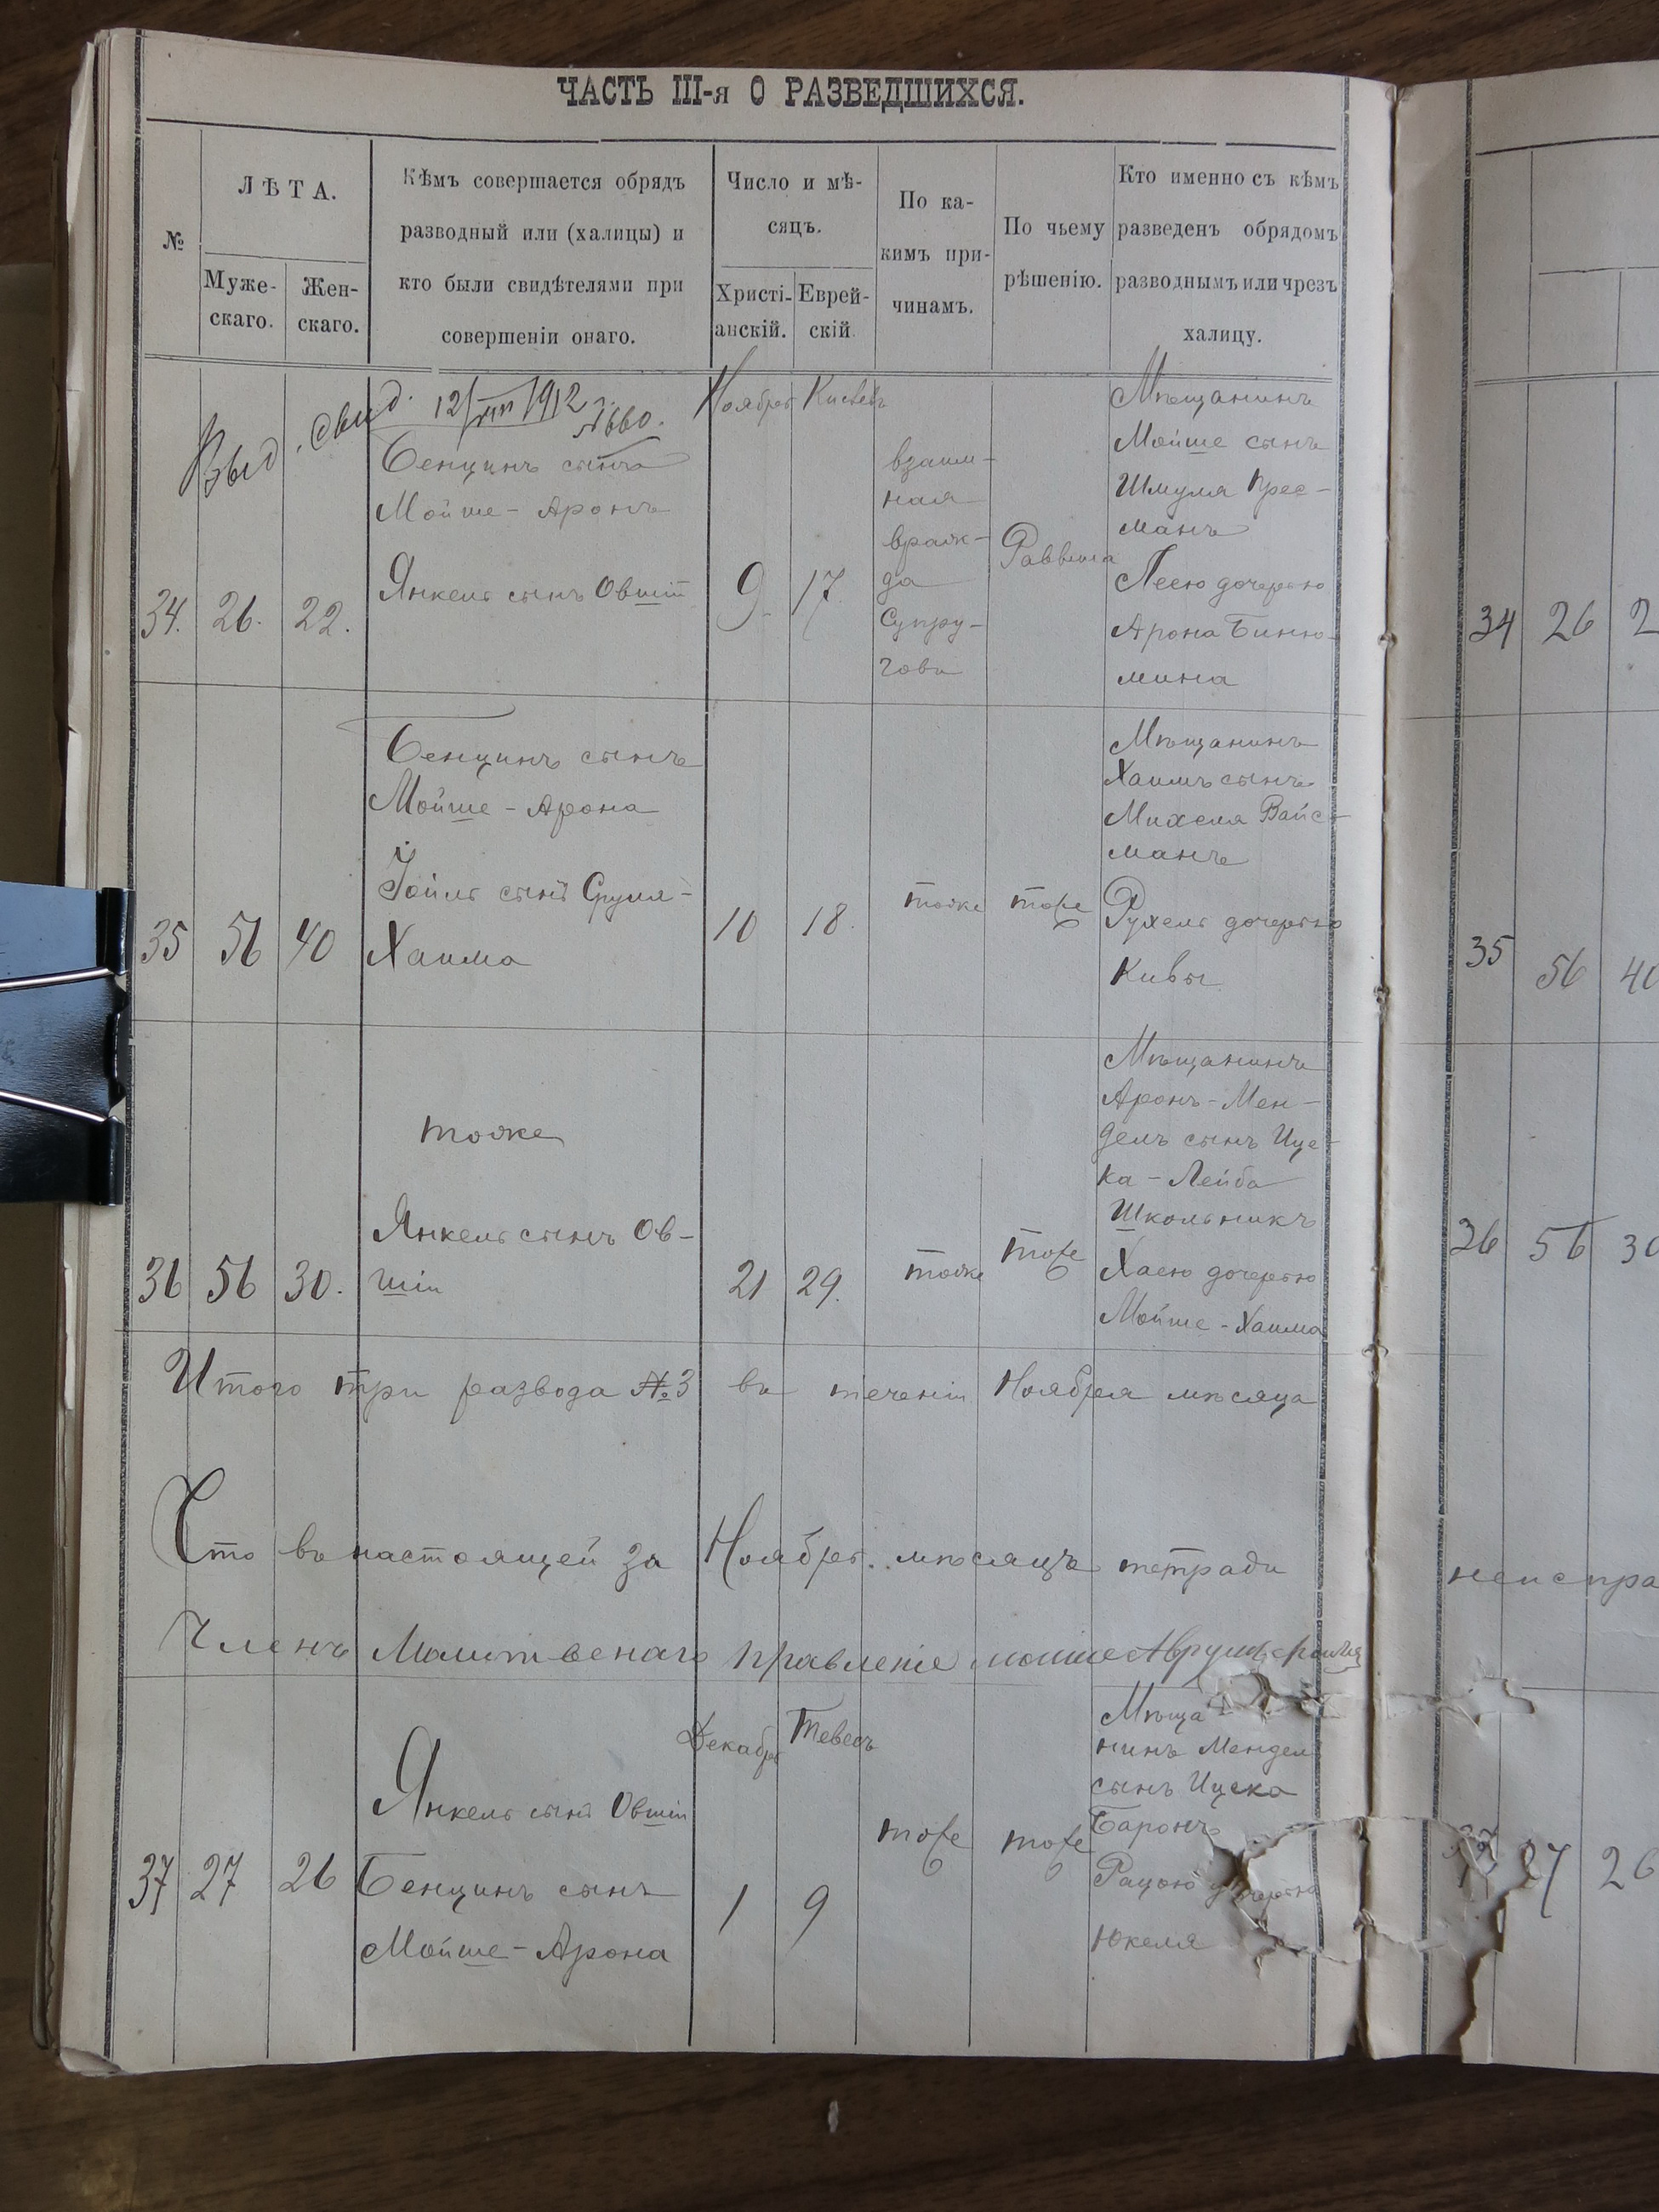 ЧАСТЬ III-я О РАЗВЕДШИХСЯ.
№
ЛѢТА.
Муже-
скаго.
Жен-
скаго.
Кѣмъ совершается обрядъ
разводный или (халицы) и
кто были свидѣтелями при
совершеніи онаго.
Число и мѣ-
сяцъ.
Христі-
анскій.
Еврей-
скій
По ка-
кимъ при-
чинамъ.
По чьему
рѣшенію.
Кто именно съ кѣмъ
разведенъ обрядомъ
разводнымъ или чрезъ
халицу.
Выд. свид. 12/VIII 1912 г.
№660.
34. 26. 22.
Бенцинъ сынъ
Мойше-Аронъ
Янкель сынъ Овшіи
Ноябрь Кислевъ
9. 17.
взаим-
ная
враж-
да
супру-
говъ
Раввина
Мѣщанинъ
Мойше сынъ
Шмуля Прес-
манъ
Леею дочерью
Арона Биню-
мина
35 56 40
Бенцинъ сынъ
Мойше-Арона
Іойль сынъ Сруля-
Хаима
10 18.
тоже
тоже
Мѣщанинъ
Хаимъ сынъ
Михеля Вайс-
манъ
Рухель дочерью
Кивы
36 56 30.
тоже
Янкель сынъ Ов-
шіи
21 29.
тоже
тоже
Мѣщанинъ
Аронъ-Мен-
дель сынъ Ице-
ка-Лейба
Школьникъ
Хаею дочерью
Мойше-Хаима
Итого три развода №3 въ теченіи Ноября мѣсяца
Что въ настоящей за Ноябрь мѣсяцъ тетради
Членъ Молитвенаго правленіе мошие
37 27 26
Янкель сынъ Овшіи
Бенцинъ сынъ
Мойше-Арона
Декабрь Тевесъ
1 9
тоже
тоже
Мѣща-
нинъ Мендел
сынъ Ицека
Баронъ
Рацою дочерью
Юкеля
34 26 2
35 56 40
36 56 30
неиспра
37 27 26